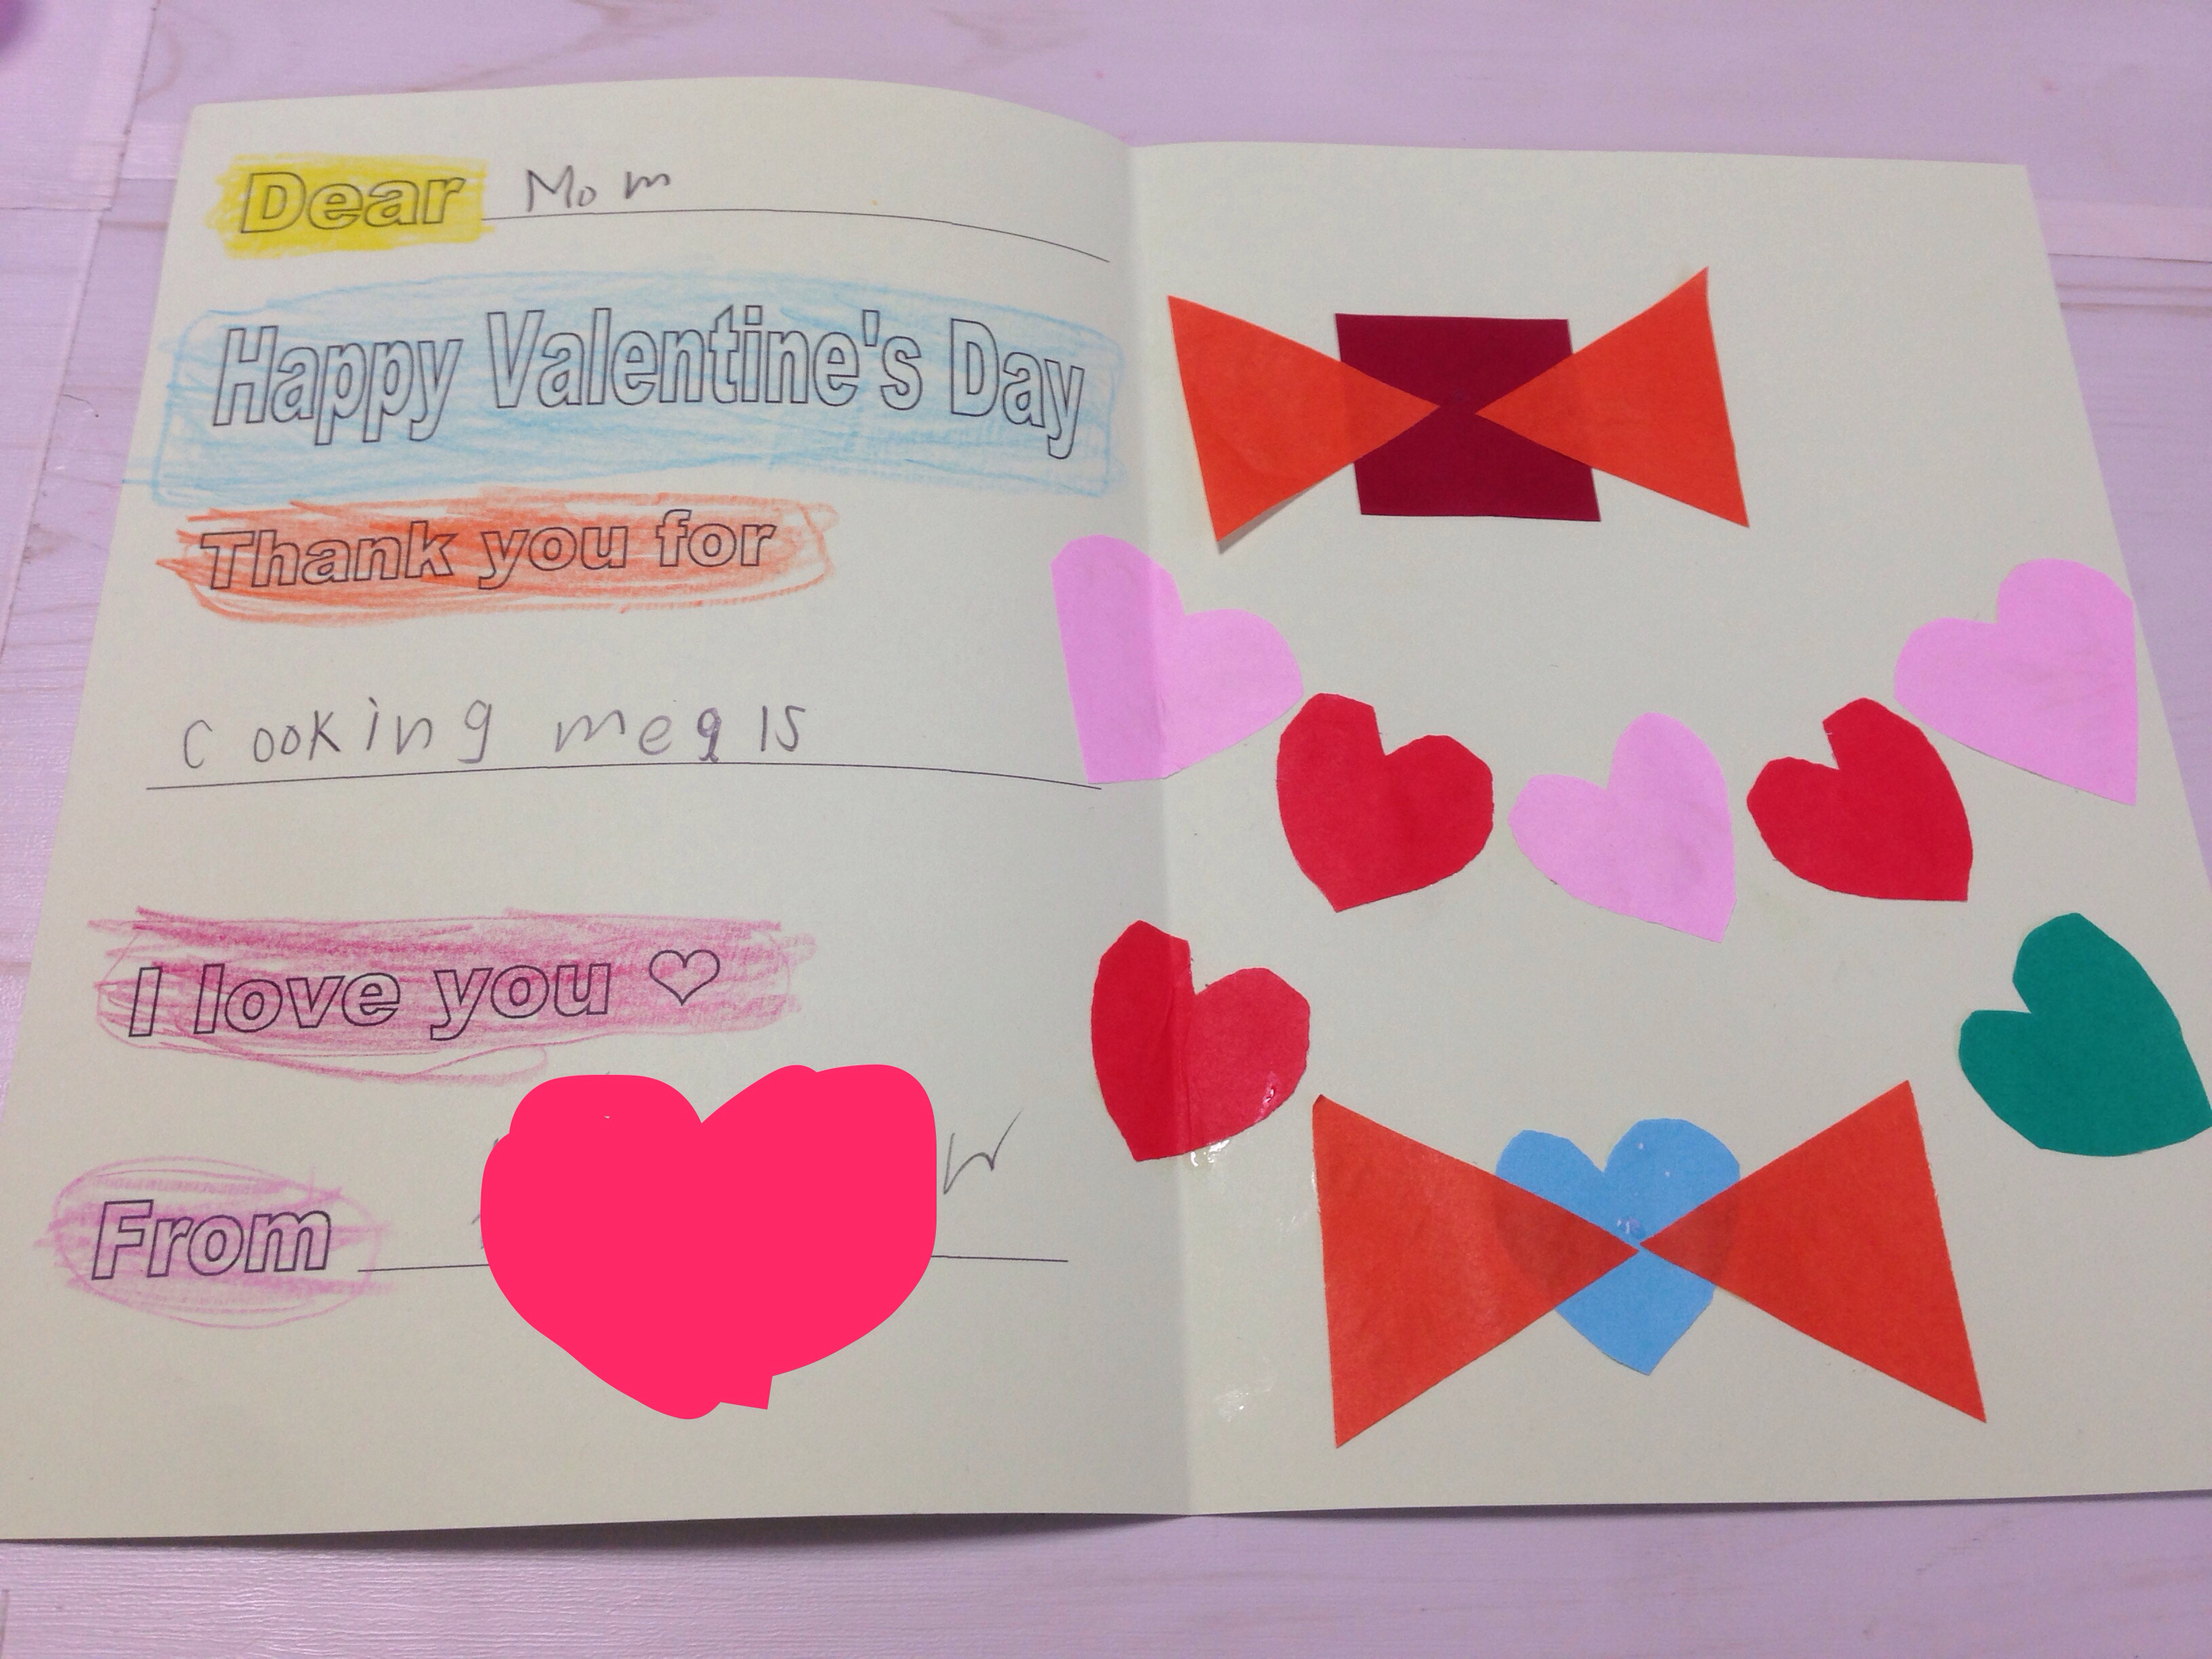 Dear Mom
Happy Valentine's Day
Thank you for
Cooking meals
I love you ♡
From